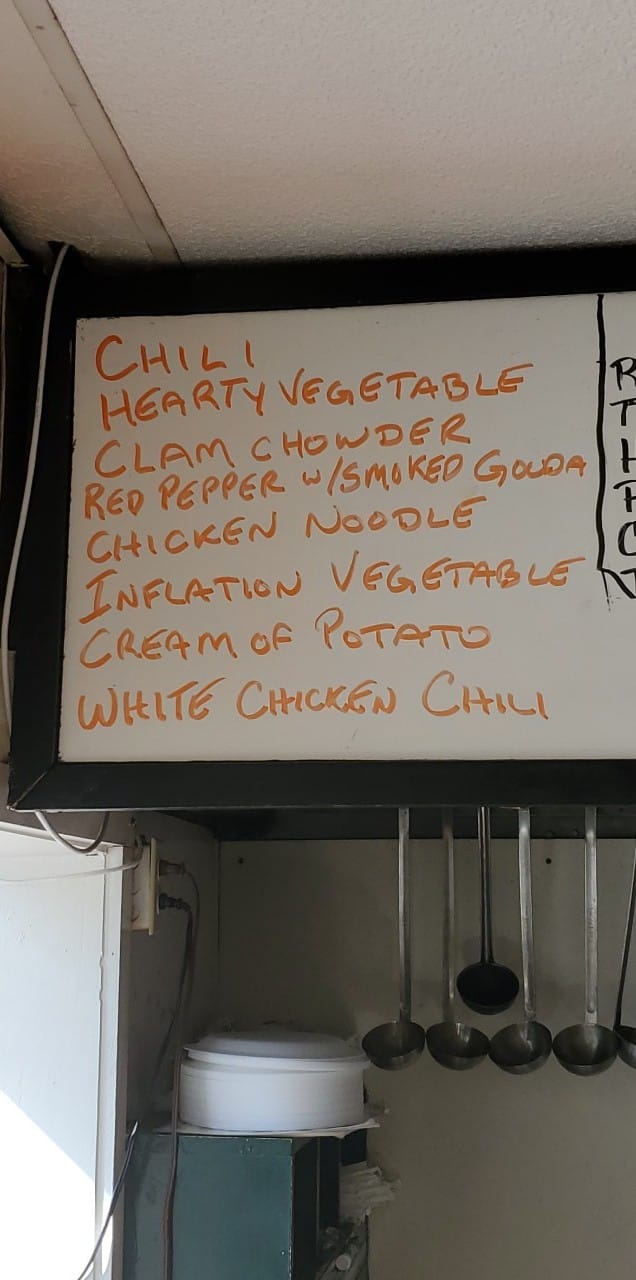 CHILI
HEARTY VEGETABLE
CLAM CHOWDER
RED PEPPER W/SMOKED GOUDA
CHICKEN NOODLE
INFLATION VEGETABLE
CREAM OF POTATO
WHITE CHICKEN CHILI